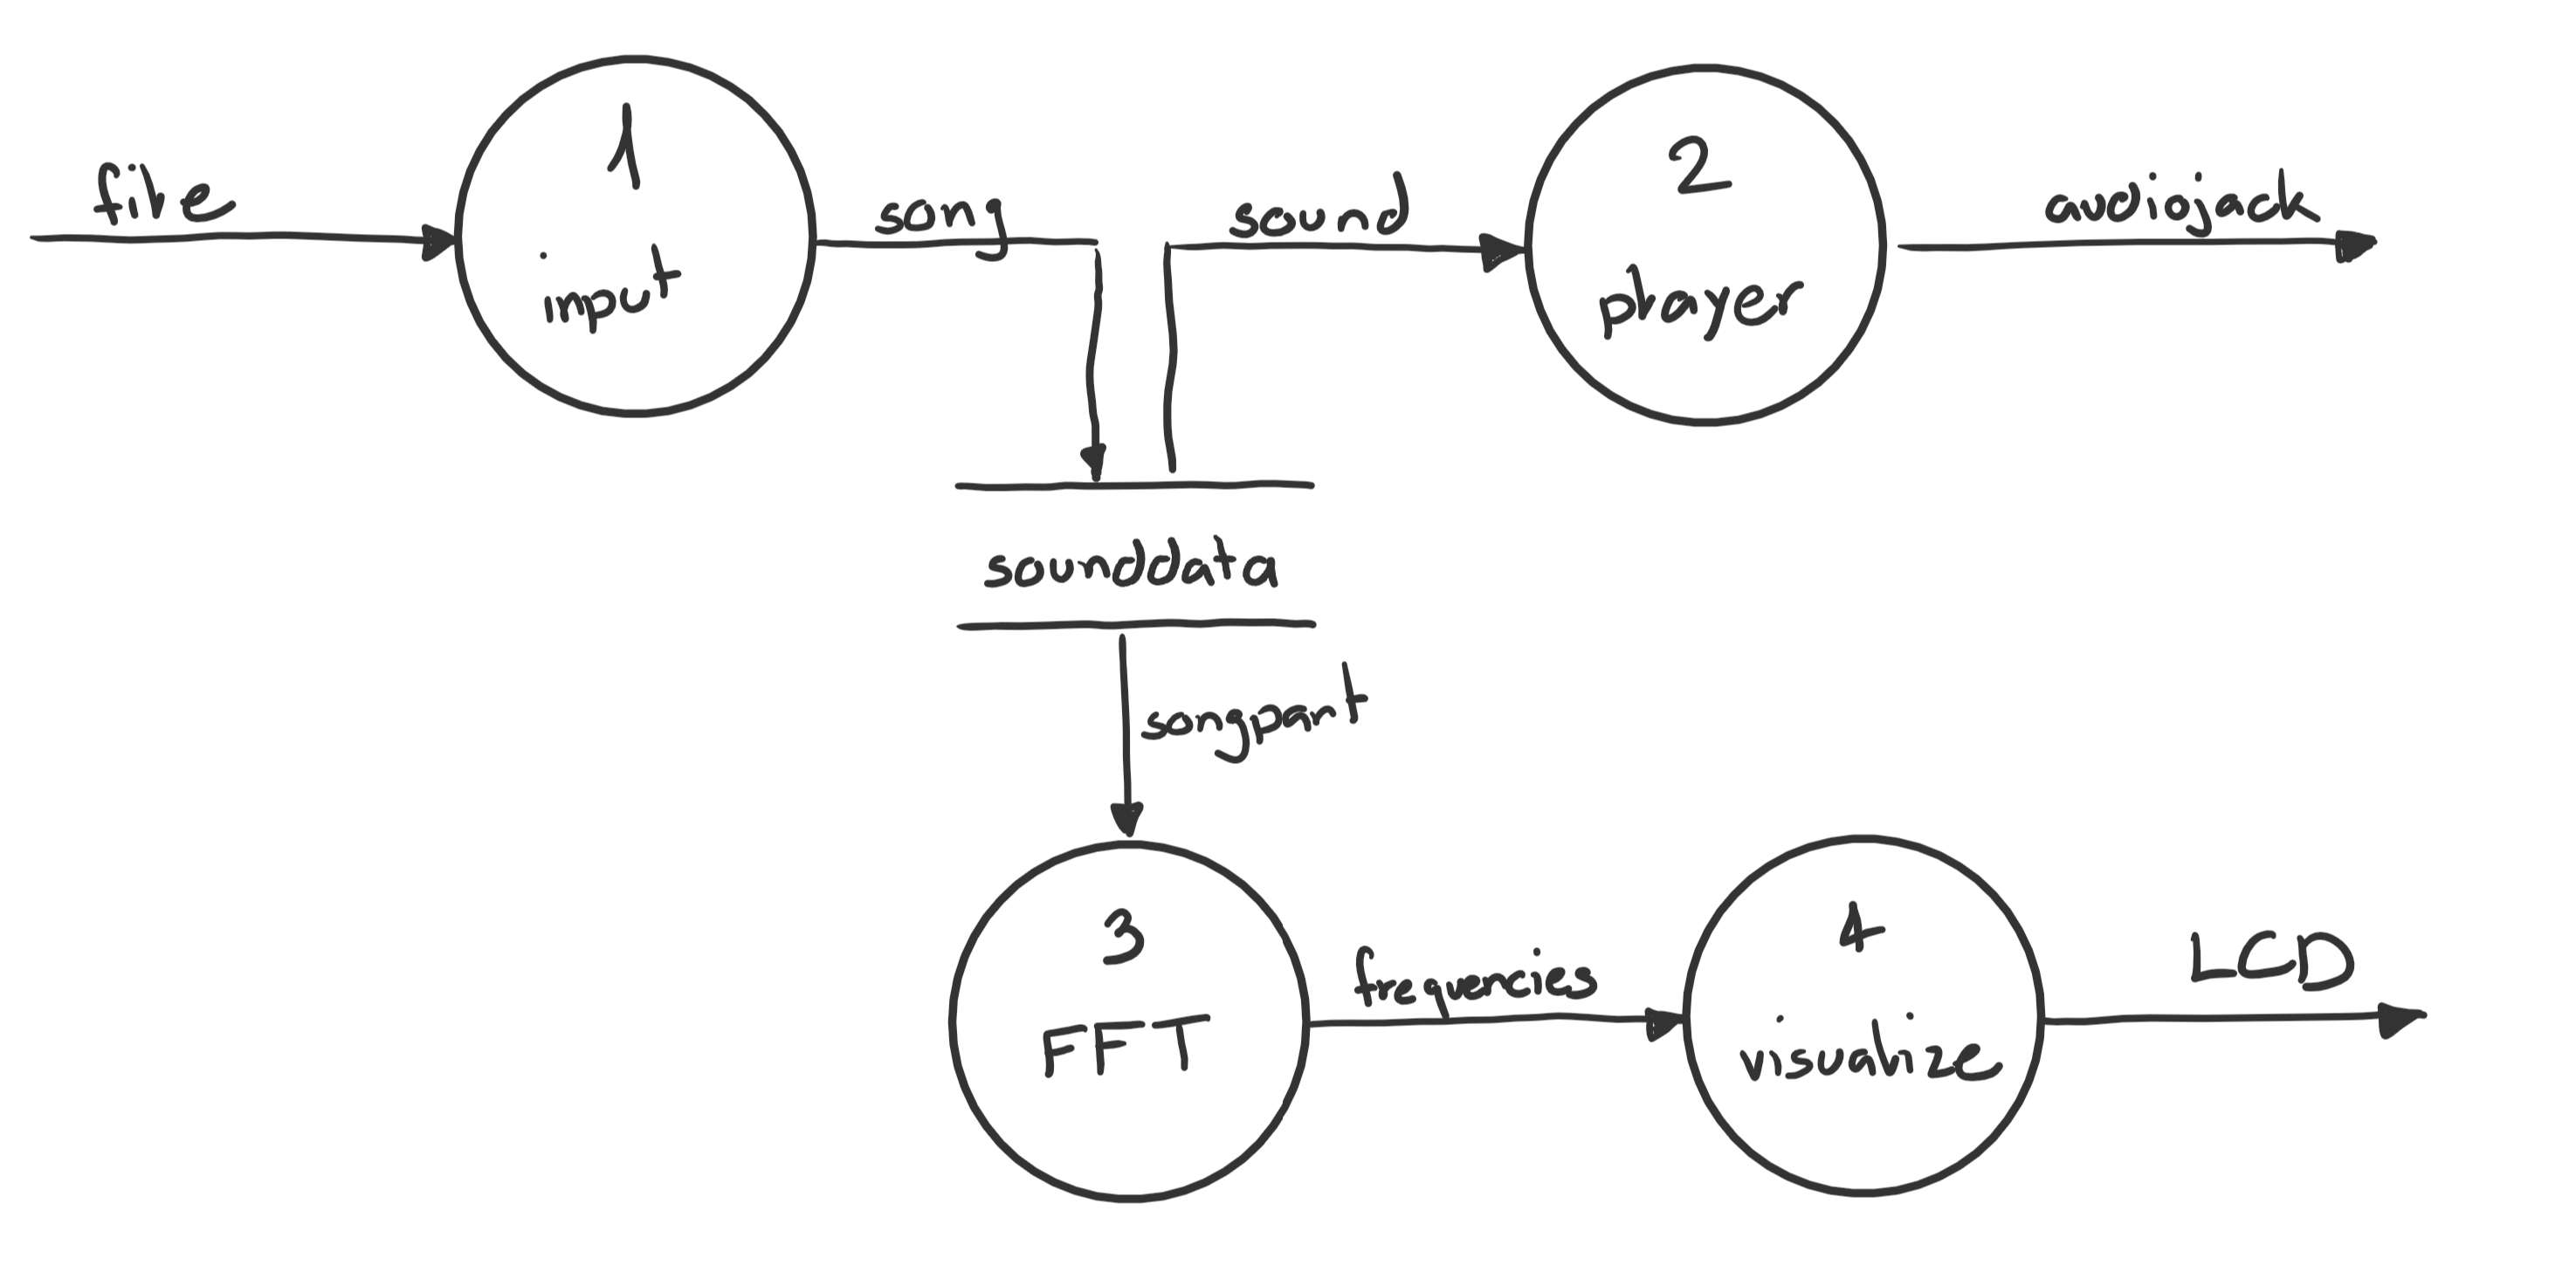 file
1
input
song
sound
2
player
audiojack
sounddata
songpart
3
FFT
frequencies
4
visualize
LCD